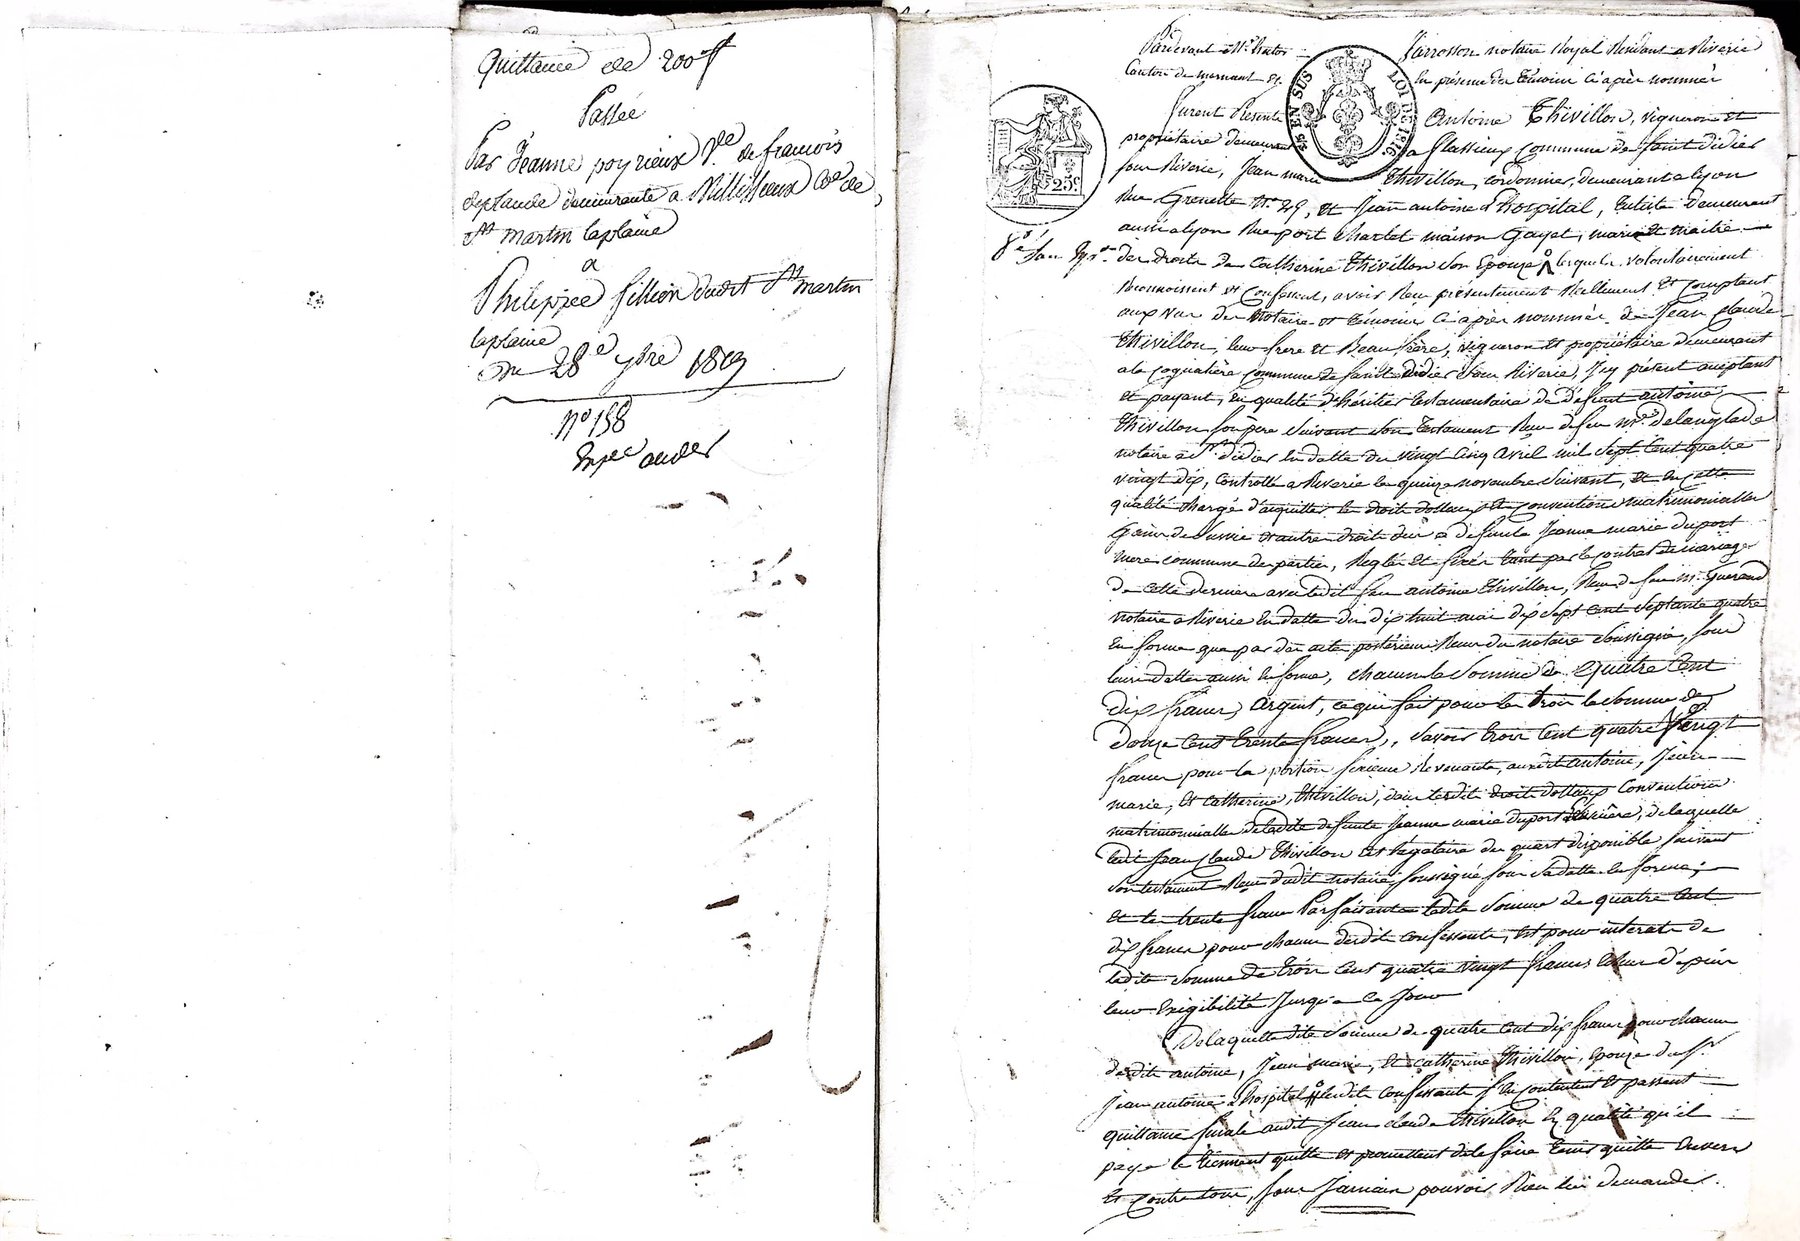 Quittance de 200 ff
Passée
Par Jeanne poyrieux Ve. de francois
deplaude demeurante a Ce. de
St martin laplaine
a
Philippe fillion dudit St martin
laplaine
Du 28e ybre 1819
No 158
Expe
Pardevant Me. Parrosson notaire Royal Résidant a Riverie
Canton de mornant & en présence des témoins ci après nommés
25 EN SUS LOI DE 1816
25c.
furent Présents Antoine Thivillon, vigneron et
propriétaire demeurant a commune de Saint didier
sous Riverie, Jean marie Thivillon, cordonnier, demeurant a lyon
Rue Grenette No. 29, et Jean antoine l'hospital, demeurant
aussi a lyon Rue port Charlet maison Gayet, mari et maitre
des droits de Catherine Thivillon son Epouse lesquels volontairement
Reconnoissent et Confessent, avoir Reçu présentement Réellement et Comptant
aux vus des Notaire et témoins ci après nommés de Jean Claude
Thivillon, leur frere et Beau frère, vigneron et propriétaire demeurant
a la coquatière commune de Saint didier sous Riverie, Icy présent acceptant
et payant, en qualité d'héritier testamentaire de défunt antoine
Thivillon son père suivant son testament Reçu de feu Mr. delanglade
notaire a St didier en datte du vingt cinq avril mil sept cent quatre
vingt dix, controllé a Riverie le quinze novembre suivant, et en cette
qualité chargé d'acquitter les droits dottaux et conventions matrimonialles
Gains de survie et autres droits dus a defunte Jeanne marie duport
mere commune des parties, Reglés et fixés tant par le contrat de mariage
de cette derniere avec ledit feu antoine Thivillon, Reçu de feu Me. Guerand
notaire a Riverie en datte du dix huit mai dix sept cent septante quatre
en forme que par des actes postérieurs Reçus du notaire soussigné, sous
leurs dattes aussi en forme, chacun la Somme de quatre Cent
dix francs, argent, ce qui fait pour les trois la somme de
douze Cent trente francs, savoir trois Cent quatre Vingt
francs pour la portion Revenante, auxdits antoine, Jean
marie, et Catherine, Thivillon, dans lesdits droits dottaux Conventions
matrimonialles de ladite defunte Jeanne marie duport mère, de laquelle
ledit Jean Claude Thivillon est legataire du quart disponible suivant
son testament Reçu dudit notaire soussigné sous sa datte en forme;
et les trente francs Parfaisants ladite Somme de quatre Cent
dix francs pour chacun desdits confessants, est pour intérets de
ladite Somme de trois Cent quatre vingt francs échus depuis
leur Exigibilité Jusqu'a ce Jour
De laquelle dite Somme de quatre Cent dix francs pour chacun
desdits antoine, Jean marie, et Catherine Thivillon, Epouse du Sr.
Jean antoine l'hospital lesdits confessants s'en contentent et passent
quittance finale audit Jean Claude Thivillon En qualité qu'il
paye le tiennent quitte et promettent de le faire tenir quitte Envers
et Contre tous, sans Jamais pouvoir Rien lui demander.